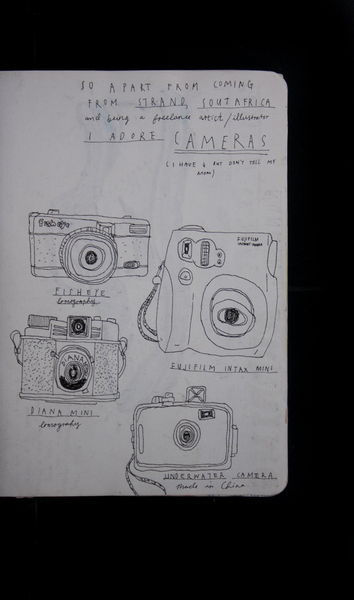 SO APART FROM COMING
FROM STRAND, SOUTAFRICA
and being a freelance artist/illustrator
I ADORE CAMERAS
(I HAVE 6 BUT DON'T TELL MY
MOM)
Fisheye
FISHEYE
lomography
FUJIFILM
FUJIFILM INTAX MINI
DIANA
DIANA MINI
lomography
UNDERWATER CAMERA
made in China